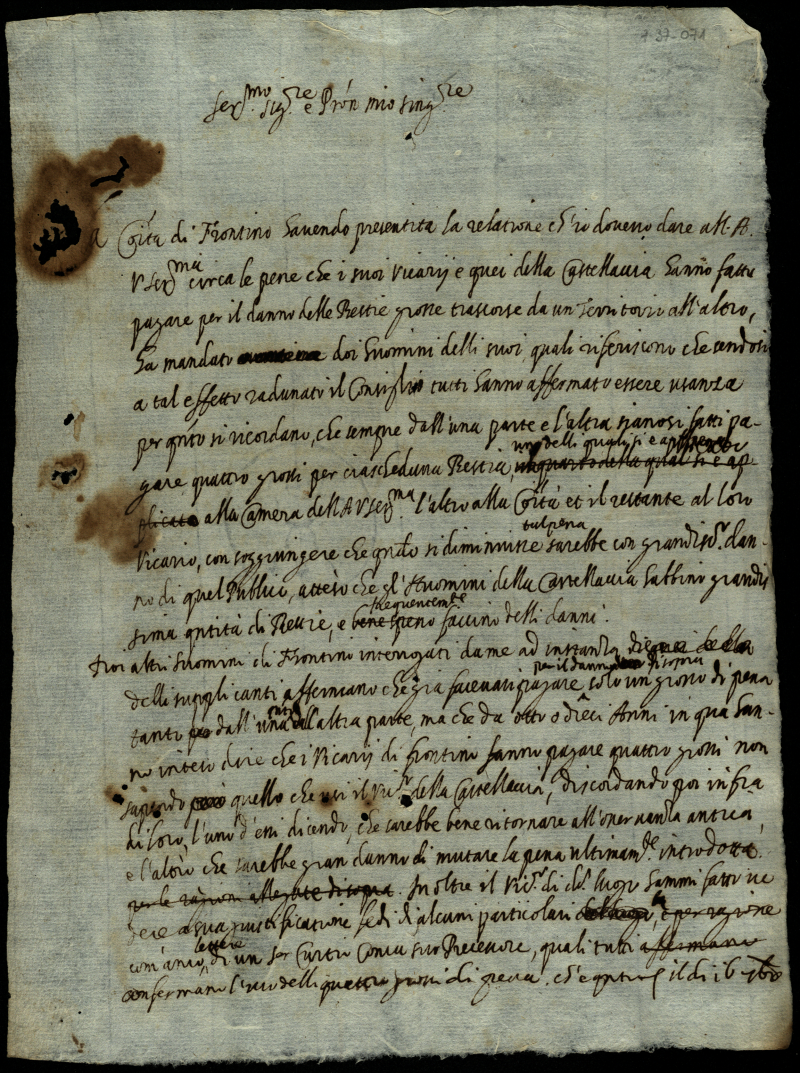 7-37-071
Ser.mo Sig.re e Pron mio sing.re
La Coita di Frontino havendo presentita la relatione ch'io dovevo dare all'A.
V Ser.ma circa le pene che i suoi Vicarij e quei della Castellaccia hanno fatto
pagare per il danno delle Bestie grosse trascorse da un Territorio all'altro,
ha mandato doi huomini delli suoi quali riferiscono che sendosi
a tal effetto radunato il Consiglio tutti hanno affermato essere usanza
per qnto si ricordano, che sempre dall'una parte e l'altra sianosi fatti pa-
uno delli quali si è
gare quattro grossi per ciascheduna Bestia, un quarto della qual si è ap
plicato alla Camera dell'AV Ser.ma l'altro alla Coita et il restante al loro
tal pena
Vicario, con soggiungere che qndo si diminuisse sarebbe con grandiss.o dan-
no di quel Publico, atteso che gl'Huomini della Castellaccia habbino grandis
sima qntità di Bestie, e bene spesso faccino delli danni.
frequentem.te
Doi altri huomini di Frontino interrogati da me ad instanza
per il danno di sopra
delli supplicanti affermano che già facevasi pagare solo un grosso di pena
tanto dall'una dall'altra parte, ma che da otto o dieci Anni in qua han-
no inteso dire che i Vicarij di Frontino fanno pagare quattro grossi non
sapendo però quello che usi il Vic.o della Castellaccia, discordando poi infra
di loro, l'uno d'essi dicendo, che sarebbe bene ritornare all'osservanza antica,
e l'altro che sarebbe gran danno di mutare la pena ultimam.te introdotta.
per le ragioni allegate di sopra. Inoltre il Vic.o di d.o luogo hammi fatto ve
dere a sua giustificatione fedi di alcuni particolari
lettere
com'anco, di un Ser Curtio suo Precessore, quali tutti affermano
confermano l'uso delli quattro grossi di pena. ch'è qnto il di 16